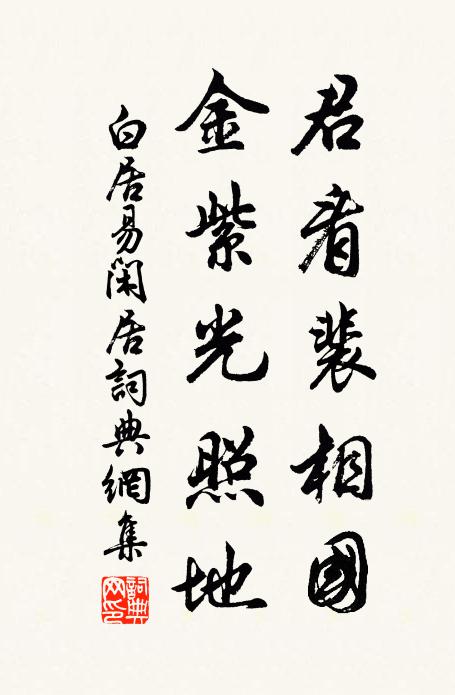 君看裴相國
金紫光照地
白居易閑居詞典網集
詞典網印